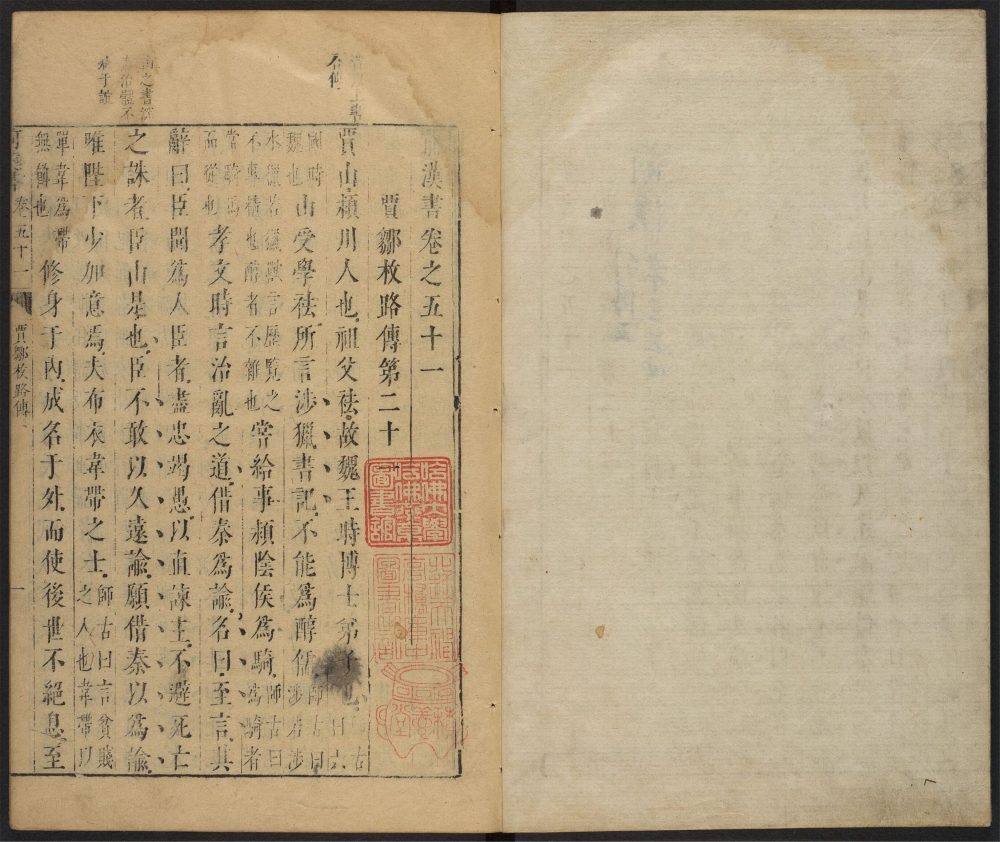 漢書卷之五十一
賈鄒枚路傳第二十
賈山潁川人也祖父祛故魏王時博士弟子也
師古曰六
國時
魏也
山受學祛所言涉獵書記不能為醇儒
師古曰
涉若涉
水獵若獵獸言歷覽之
不專精也醇者不雜也
嘗給事潁陰侯為騎
師古曰
為騎者
常騎馬
而從也
孝文時言治亂之道借秦為諭名曰至言其
辭曰臣聞為人臣者盡忠竭愚以直諫主不避死亡
之誅者臣山是也臣不敢以久遠諭願借秦以為諭
唯陛下少加意焉夫布衣韋帶之士
師古曰言貧賤
之人也韋帶以
單韋為帶
無飾也
修身于內成名于外而使後世不絕息至
卷五十一
賈鄒枚路傳
一
哈佛大學
哈佛燕京
圖書館